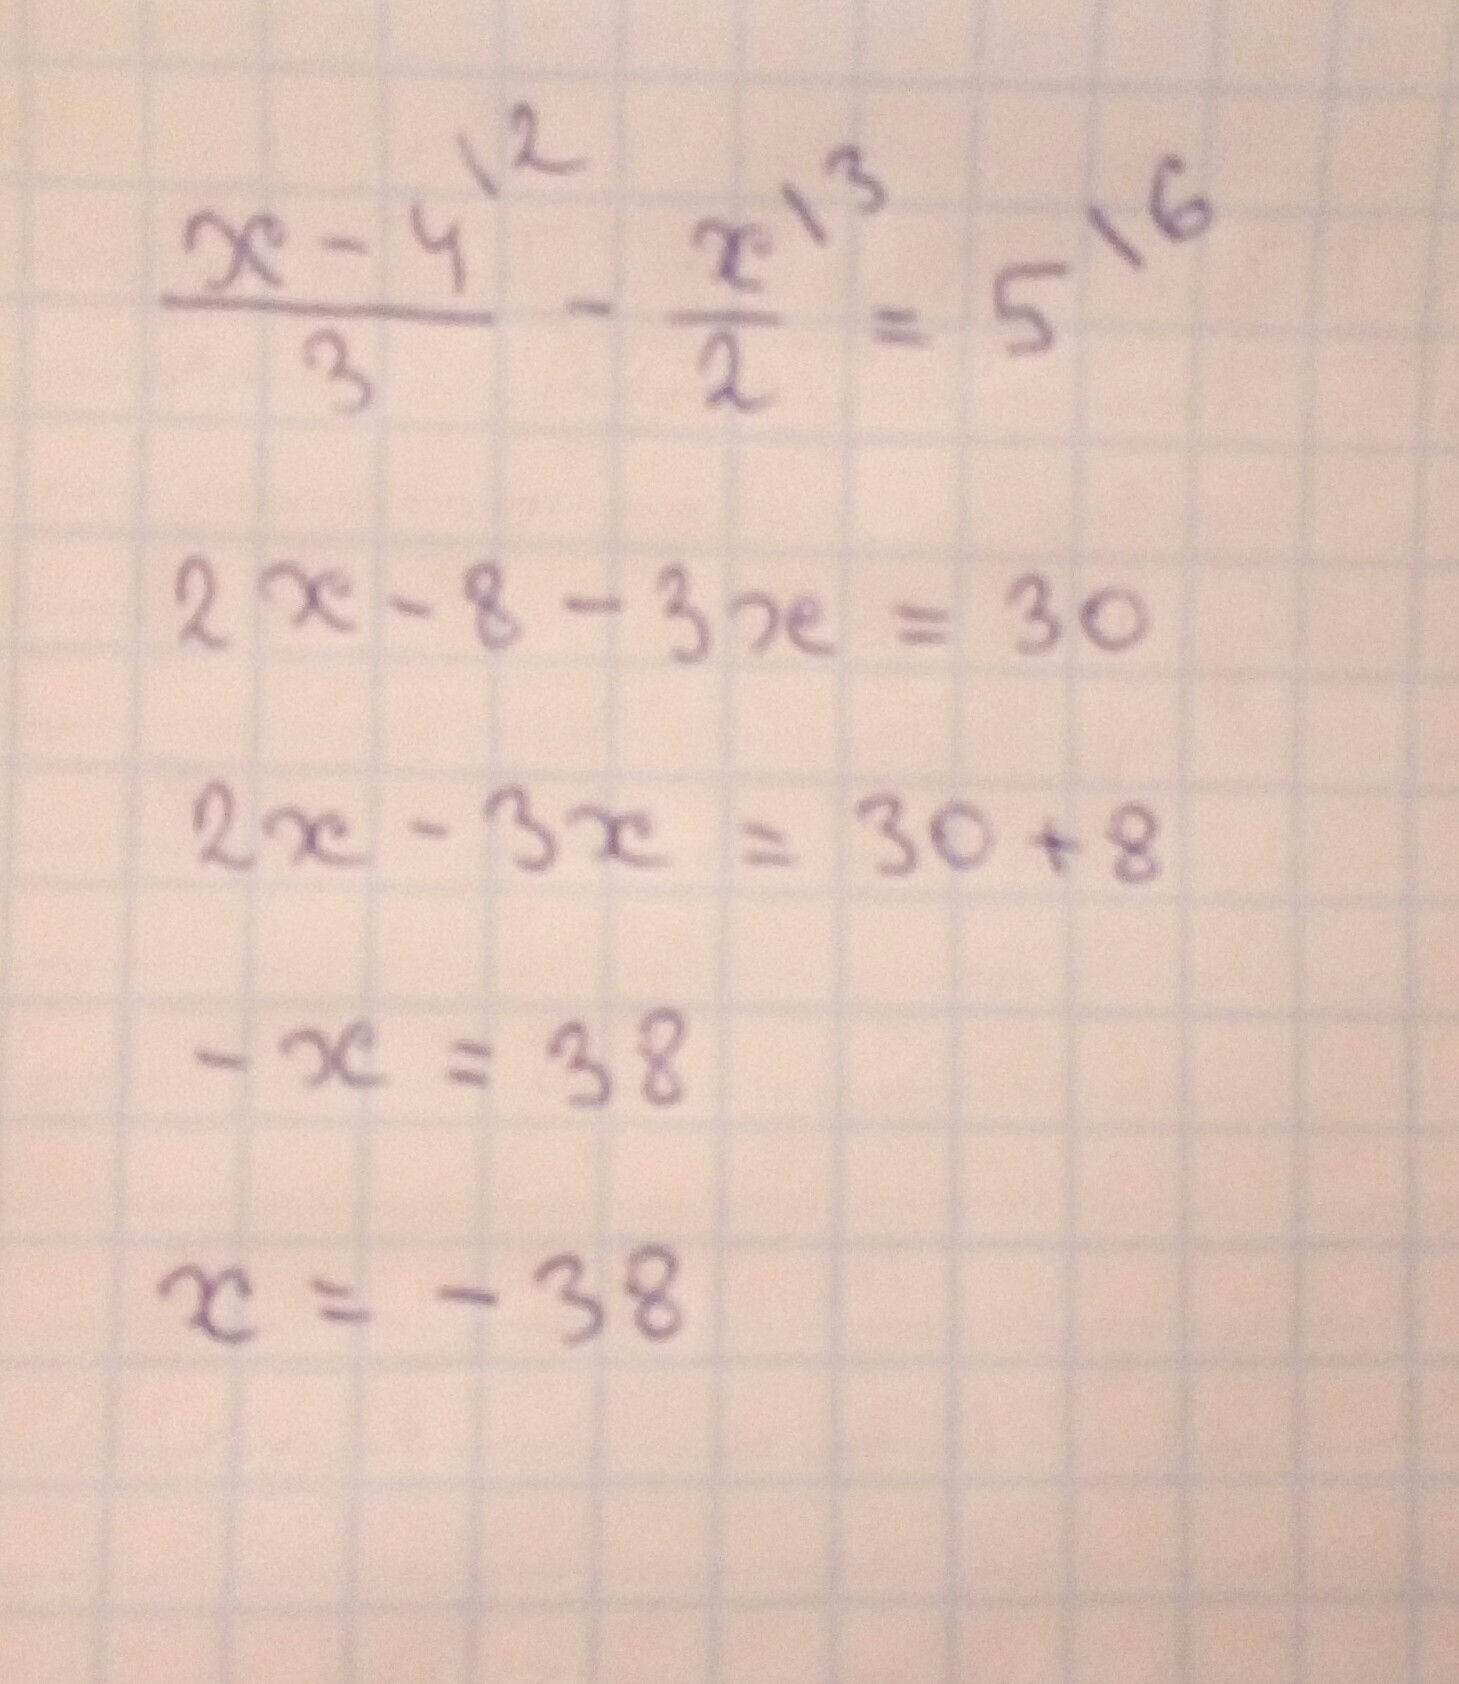 \frac{x-4^{\backslash 2}}{3} - \frac{x^{\backslash 3}}{2} = 5^{\backslash 6}
2x - 8 - 3x = 30
2x - 3x = 30 + 8
-x = 38
x = -38